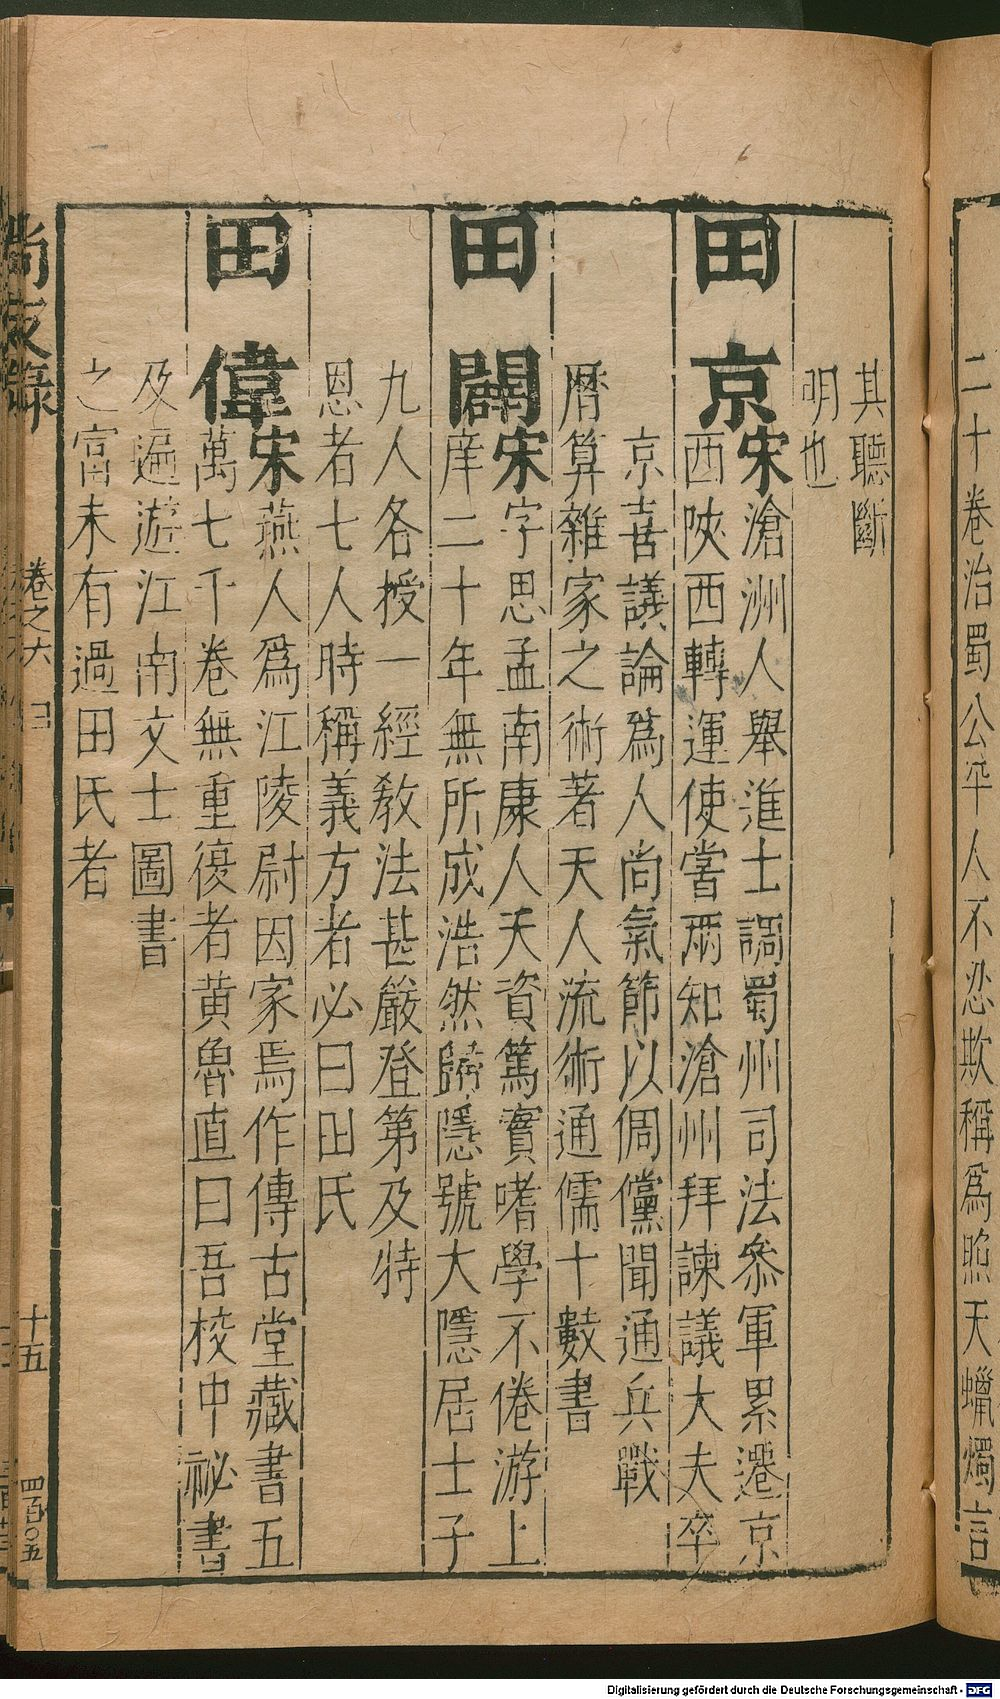 二十卷治蜀公平人不忍欺稱爲照天蠟燭言
其聽斷
明也
田京
宋滄洲人舉進士調蜀州司法參軍累遷京
西陜西轉運使嘗兩知滄州拜諫議大夫卒
京喜議論爲人尚氣節以倜儻聞通兵戰
曆算雜家之術著天人流術通儒十數書
田闢
宋字思孟南康人天資篤實嗜學不倦游上
庠二十年無所成浩然歸隱號大隱居士子
九人各授一經教法甚嚴登第及特
恩者七人時稱義方者必曰田氏
田偉
宋燕人爲江陵尉因家焉作傳古堂藏書五
萬七千卷無重復者黄魯直曰吾校中祕書
及遍游江南文士圖書
之富未有過田氏者
尚友錄 卷之六 十五 四百〇五
Digitalisierung gefördert durch die Deutsche Forschungsgemeinschaft - DFG